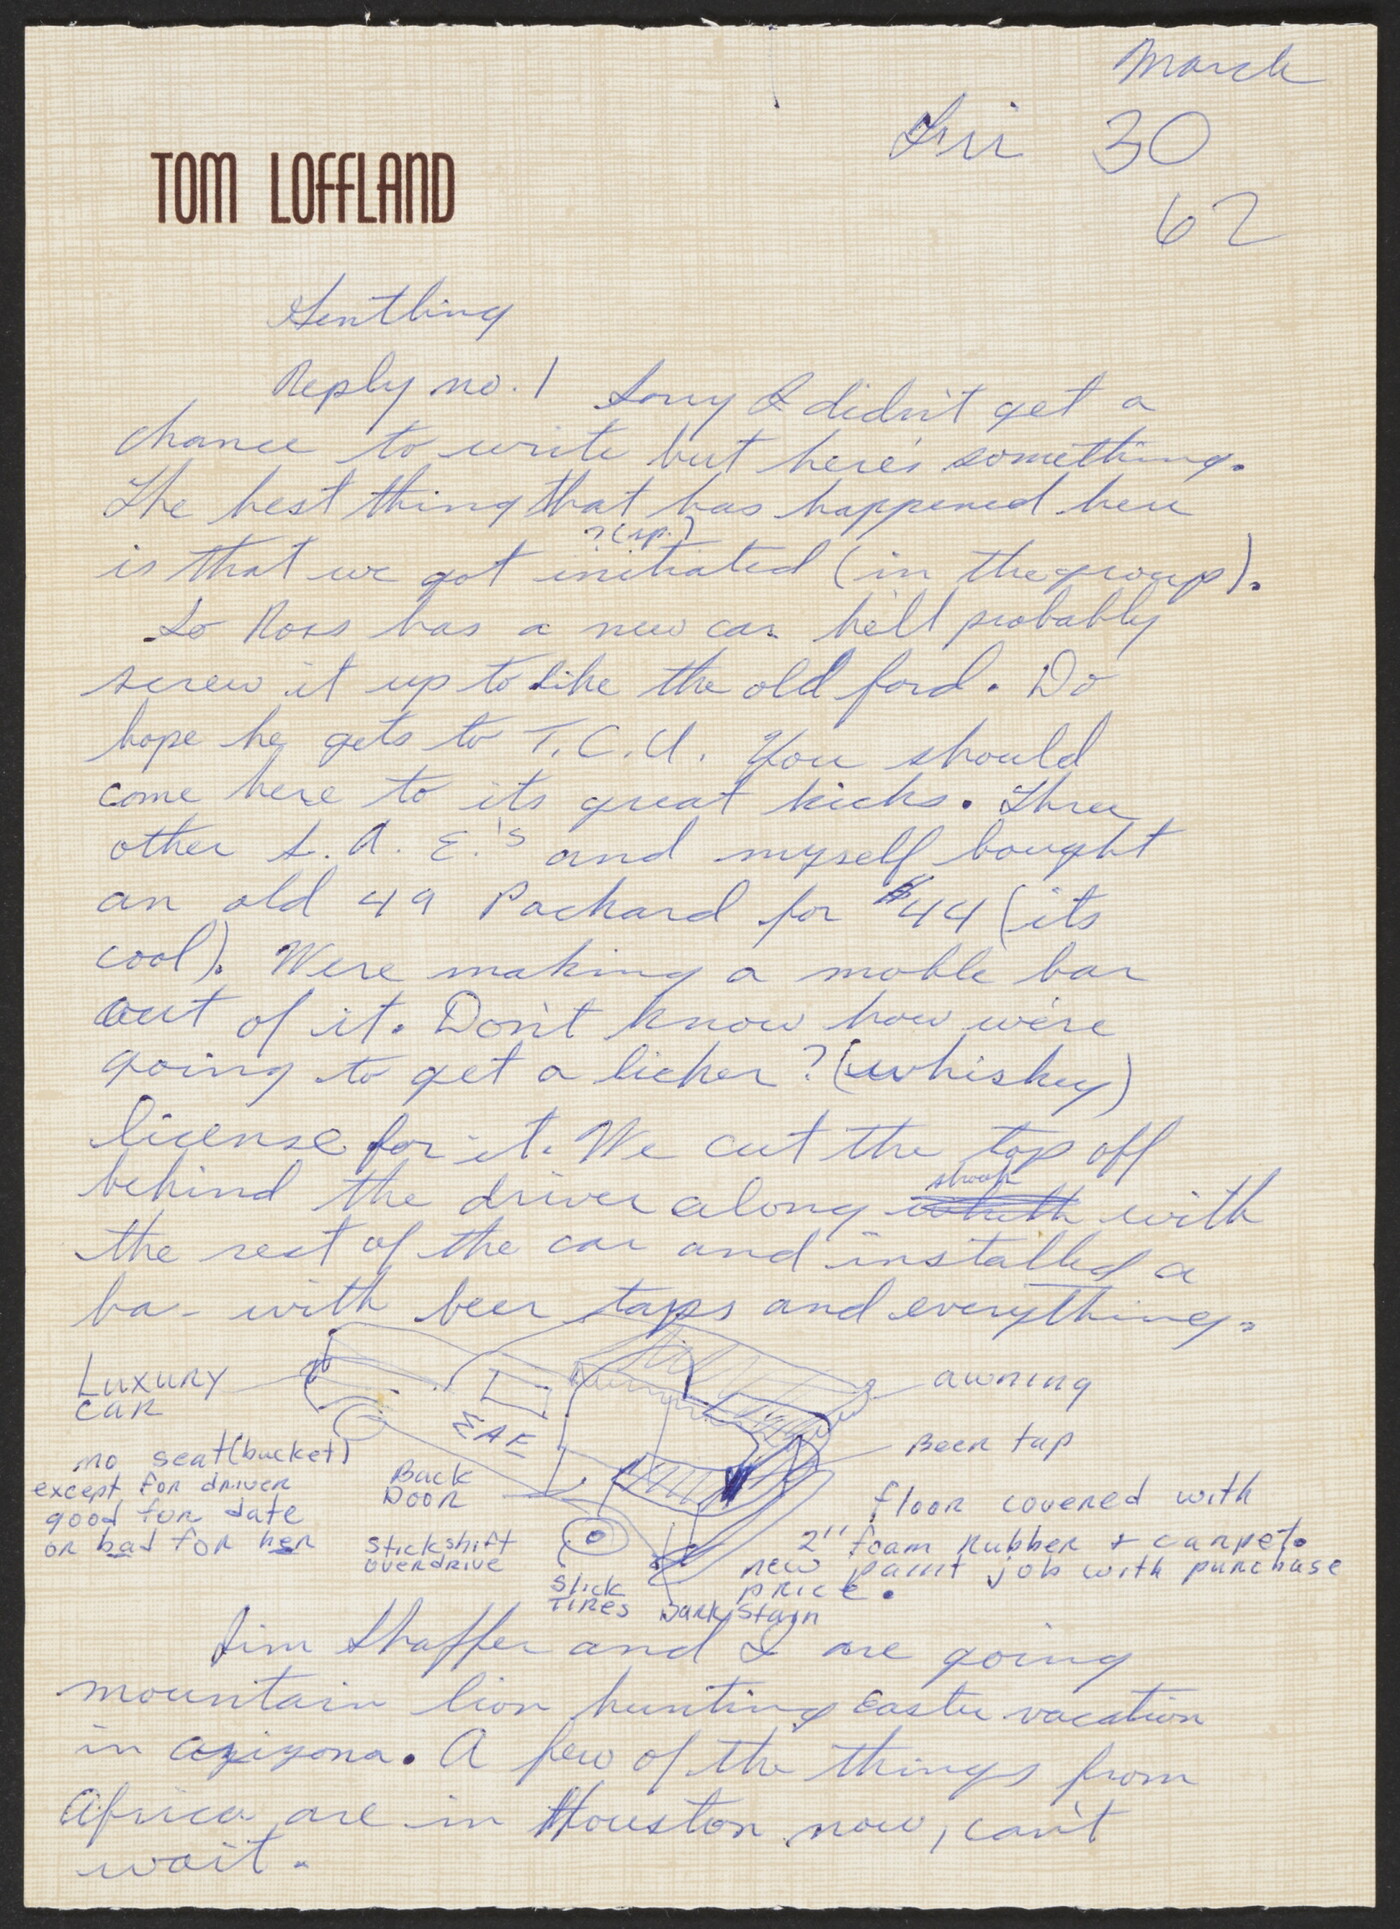 March
Fri 30
62
TOM LOFFLAND
Gentling
Reply no. 1 Sorry I didn't get a
chance to write but here's something.
The best thing that has happened here
?(sp.)
is that we got initiated (in the group).
So Ross has a new car he'll probably
screw it up to like the old ford. Do
hope he gets to T.C.U. You should
come here to its great kicks. Three
other S.A.E.'s and myself bought
an old 49 Packard for $44 (its
cool). Were making a moble bar
out of it. Don't know how we're
going to get a licker? (whiskey)
license for it. We cut the top off
behind the driver along with
the rest of the car and installed a
ba- with beer taps and everything.
Luxury
car
awning
ΣAE
Beer tap
no seat (bucket)
except for driver
good for date
or bad for her
Back
Door
floor covered with
2" foam rubber + carpet.
Stickshift
overdrive
new paint job with purchase
price.
Slick
Tires
Jim Shaffer and I are going
mountain lion hunting Easter vacation
in arizona. A few of the things from
Africa are in Houston now, can't
wait.